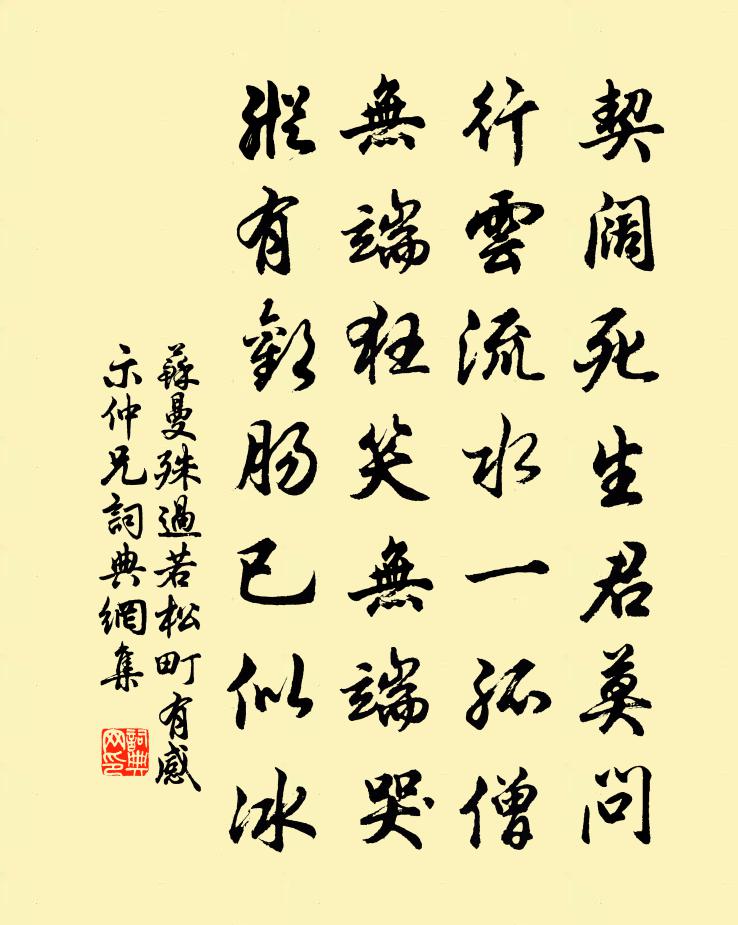 契阔死生君莫問
行雲流水一孤僧
無端狂笑無端哭
縱有歡肠已似冰
蘇曼殊過若松町有感
示仲兄詞典網集
詞典网印